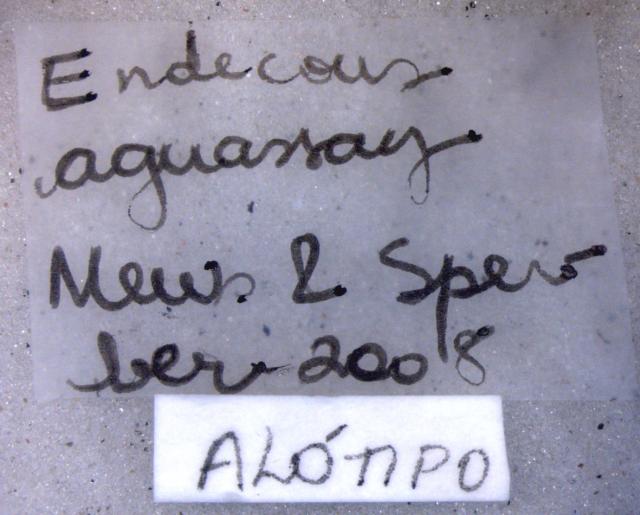 Endecous
aguassay
Mews & Sper
ber 2008
ALÓTIPO